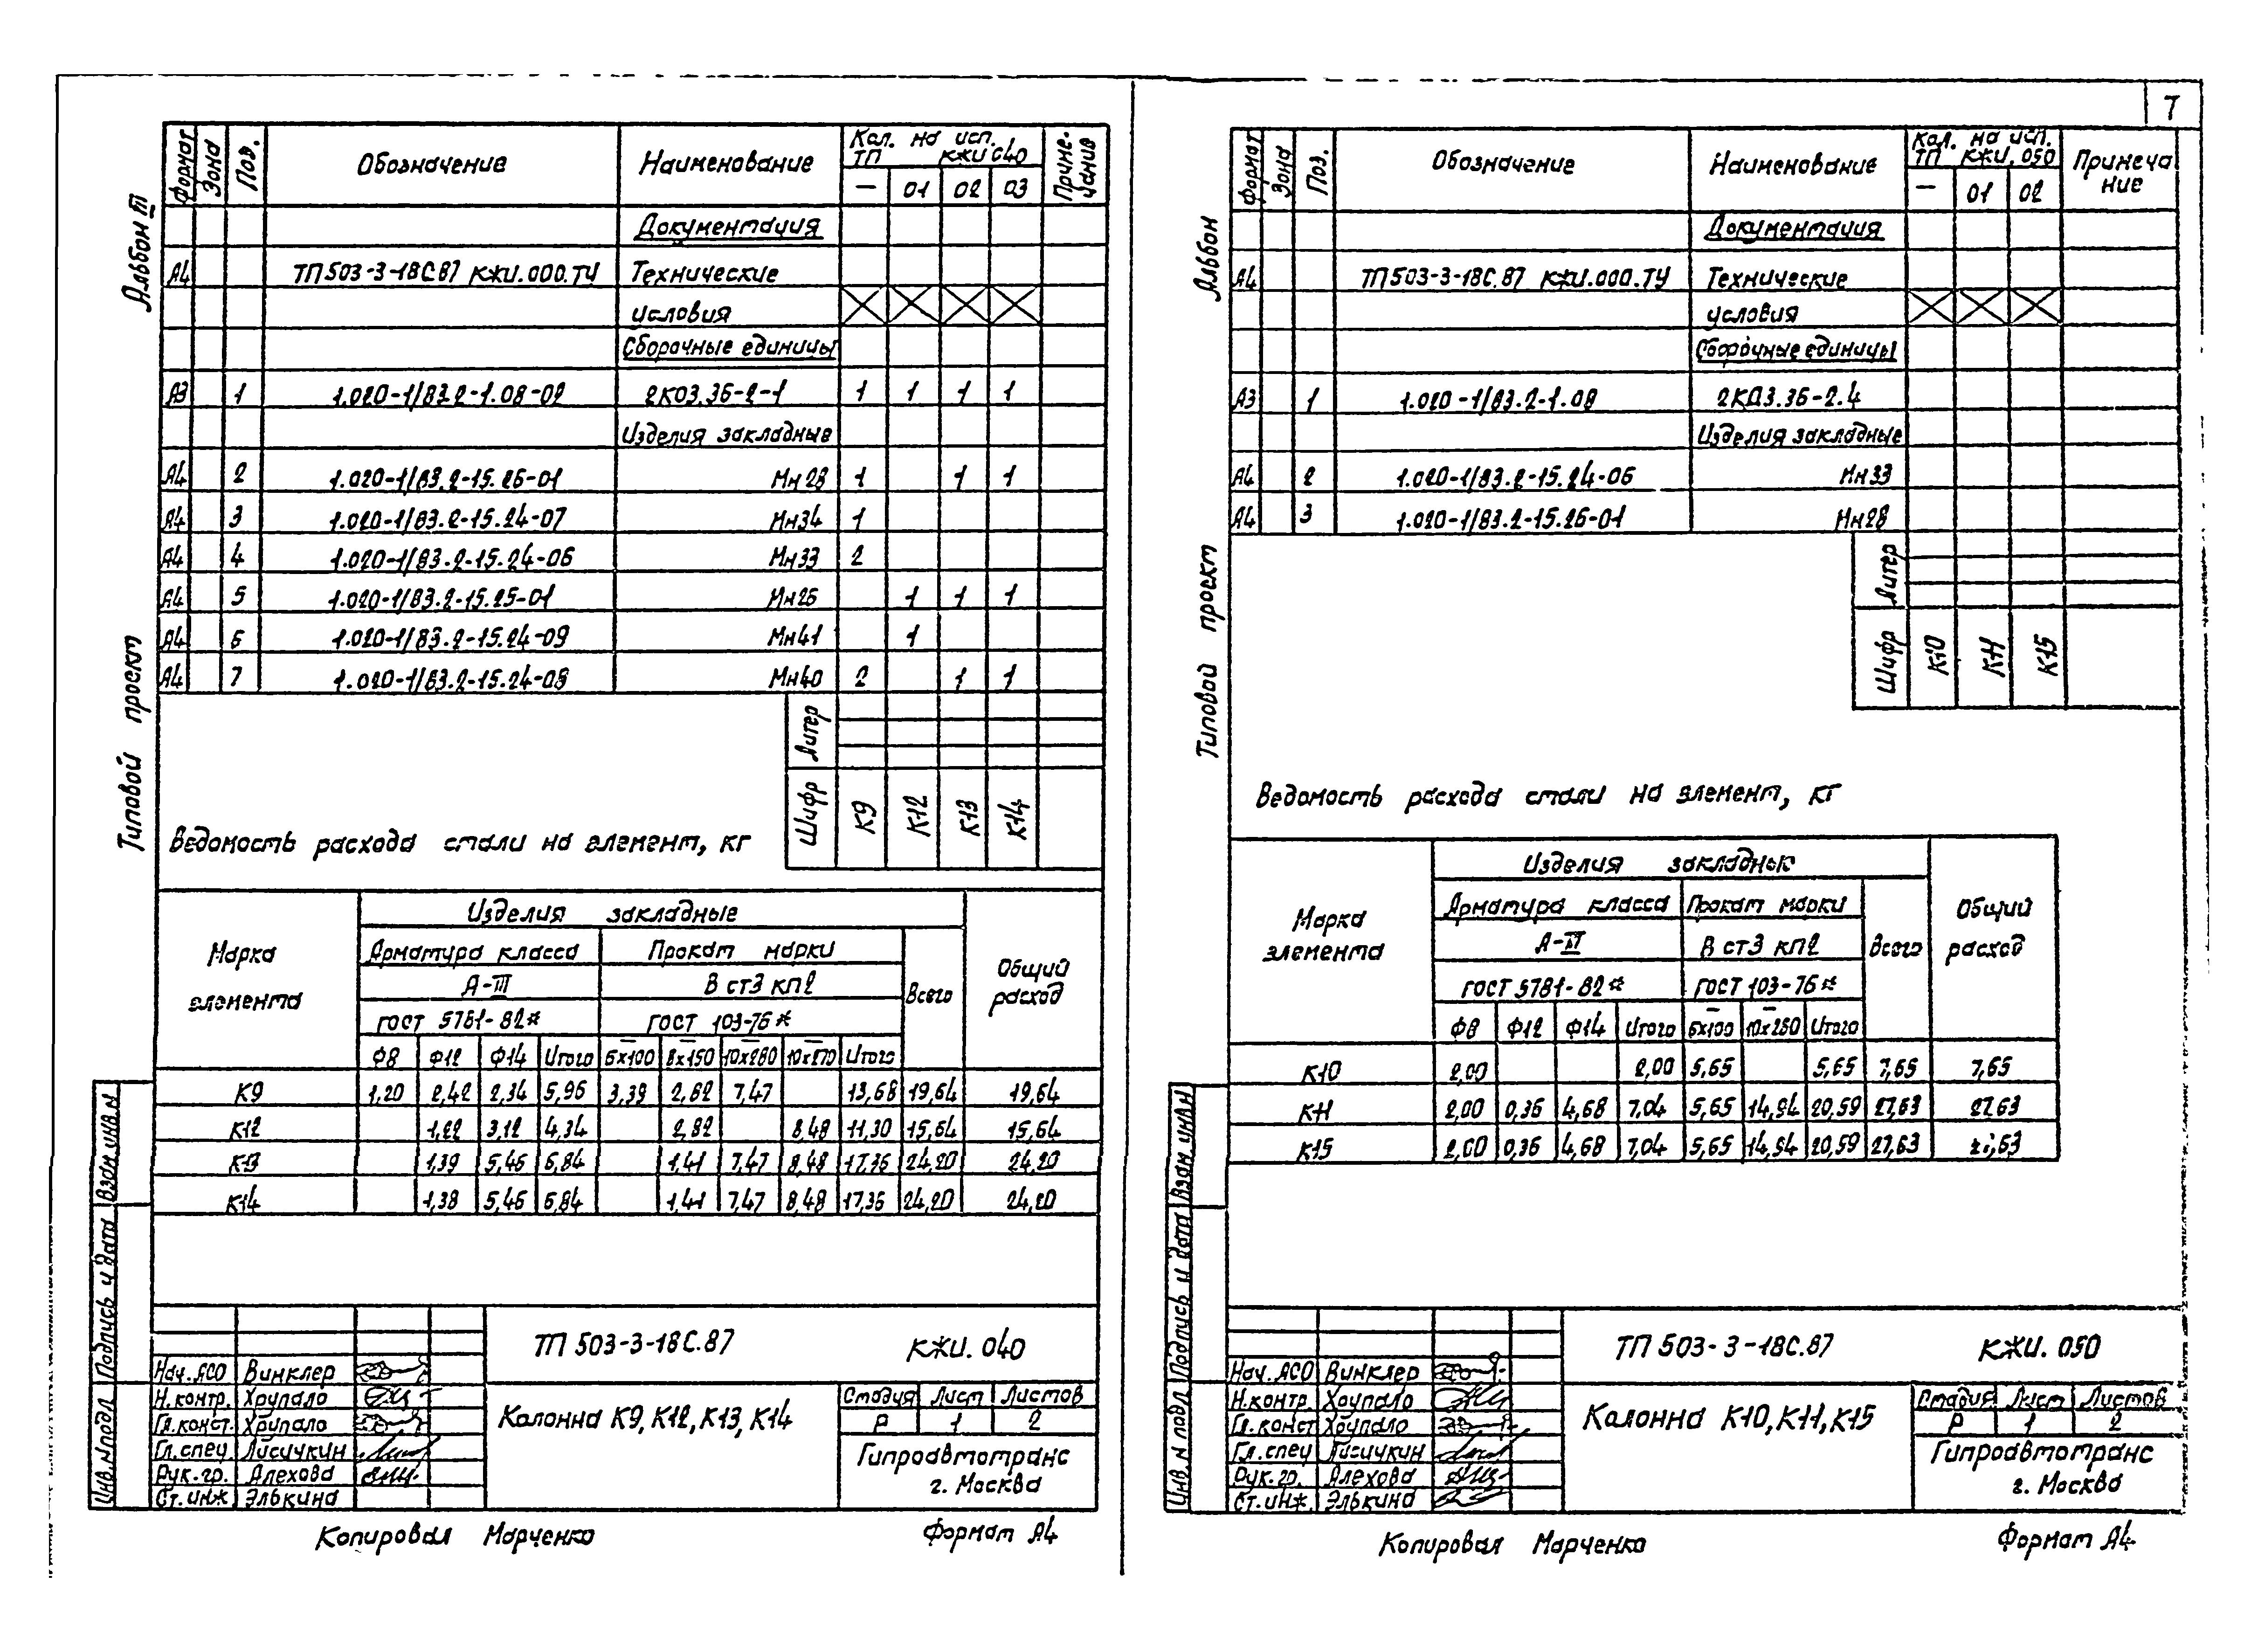 7
Альбом III
Типовой проект
Формат Зона Поз. Обозначение Наименование Кол. на исп. ТП КЖИ 040 Приме- чание
— 01 02 03
Документация
А4 ТП503-3-18С.87 КЖИ.000.ТУ Технические
условия
Сборочные единицы
А3 1 1.020-1/83.2-1.08-02 2КО3.36-2-1 1 1 1 1
Изделия закладные
А4 2 1.020-1/83.2-15.26-01 Мн28 1 1 1
А4 3 1.020-1/83.2-15.24-07 Мн34 1
А4 4 1.020-1/83.2-15.24-06 Мн33 2
А4 5 1.020-1/83.2-15.25-01 Мн26 1 1 1
А4 6 1.020-1/83.2-15.24-09 Мн41 1
А4 7 1.020-1/83.2-15.24-08 Мн40 2 1 1
Литер
Шифр К9 К12 К13 К14
Ведомость расхода стали на элемент, кг
Марка элемента Изделия закладные Общий расход
Арматура класса Прокат марки Всего
А-III В ст3 кп2
ГОСТ 5781-82* ГОСТ 103-76*
Ф8 Ф12 Ф14 Итого 6х100 8х150 10х280 10х270 Итого
К9 1,20 2,42 2,34 5,96 3,39 2,82 7,47 13,68 19,64 19,64
К12 1,22 3,12 4,34 2,82 8,48 11,30 15,64 15,64
К13 1,39 5,46 6,84 1,41 7,47 8,48 17,36 24,20 24,20
К14 1,38 5,46 6,84 1,41 7,47 8,48 17,36 24,20 24,20
Взам.инв.N
Подпись и дата
Инв.N подл
ТП 503-3-18С.87 КЖИ. 040
Нач.АСО Винклер
Н.контр. Хрупало
Гл.конст. Хрупало
Гл.спец. Лисичкин
Рук.гр. Алехова
Ст.инж Элькина
Колонна К9, К12, К13, К14
Стадия Лист Листов
Р 1 2
Гипроавтотранс
г. Москва
Копировал Марченко Формат А4
Альбом
Типовой проект
Формат Зона Поз. Обозначение Наименование Кол. на исп. ТП КЖИ. 050 Примеча ние
— 01 02
Документация
А4 ТП503-3-18С.87 КЖИ.000.ТУ Технические
условия
Сборочные единицы
А3 1 1.020-1/83.2-1.08 2КО3.36-2.4
Изделия закладные
А4 2 1.020-1/83.2-15.24-06 Мн33
А4 3 1.020-1/83.2-15.26-01 Мн28
Литер
Шифр К10 К11 К15
Ведомость расхода стали на элемент, кг
Марка элемента Изделия закладные Общий расход
Арматура класса Прокат марки Всего
А-III В ст3 кп2
ГОСТ 5781-82* ГОСТ 103-76*
Ф8 Ф12 Ф14 Итого 6х100 10х280 Итого
К10 2,00 2,00 5,65 5,65 7,65 7,65
К11 2,00 0,36 4,68 7,04 5,65 14,94 20,59 27,63 27,63
К15 2,00 0,36 4,68 7,04 5,65 14,94 20,59 27,63 27,63
Взам.инв.N
Подпись и дата
Инв.N подл
ТП 503-3-18С.87 КЖИ. 050
Нач.АСО Винклер
Н.контр. Хрупало
Гл.конст Хрупало
Гл.спец Лисичкин
Рук.гр. Алехова
Ст.инж. Элькина
Колонна К10, К11, К15
Стадия Лист Листов
Р 1 2
Гипроавтотранс
г. Москва
Копировал Марченко Формат А4